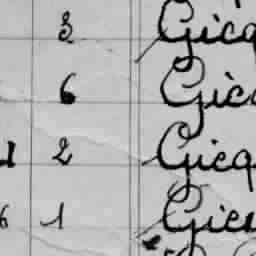 3 Gicq
6 Gic
2 Gicq
6 1 Gic